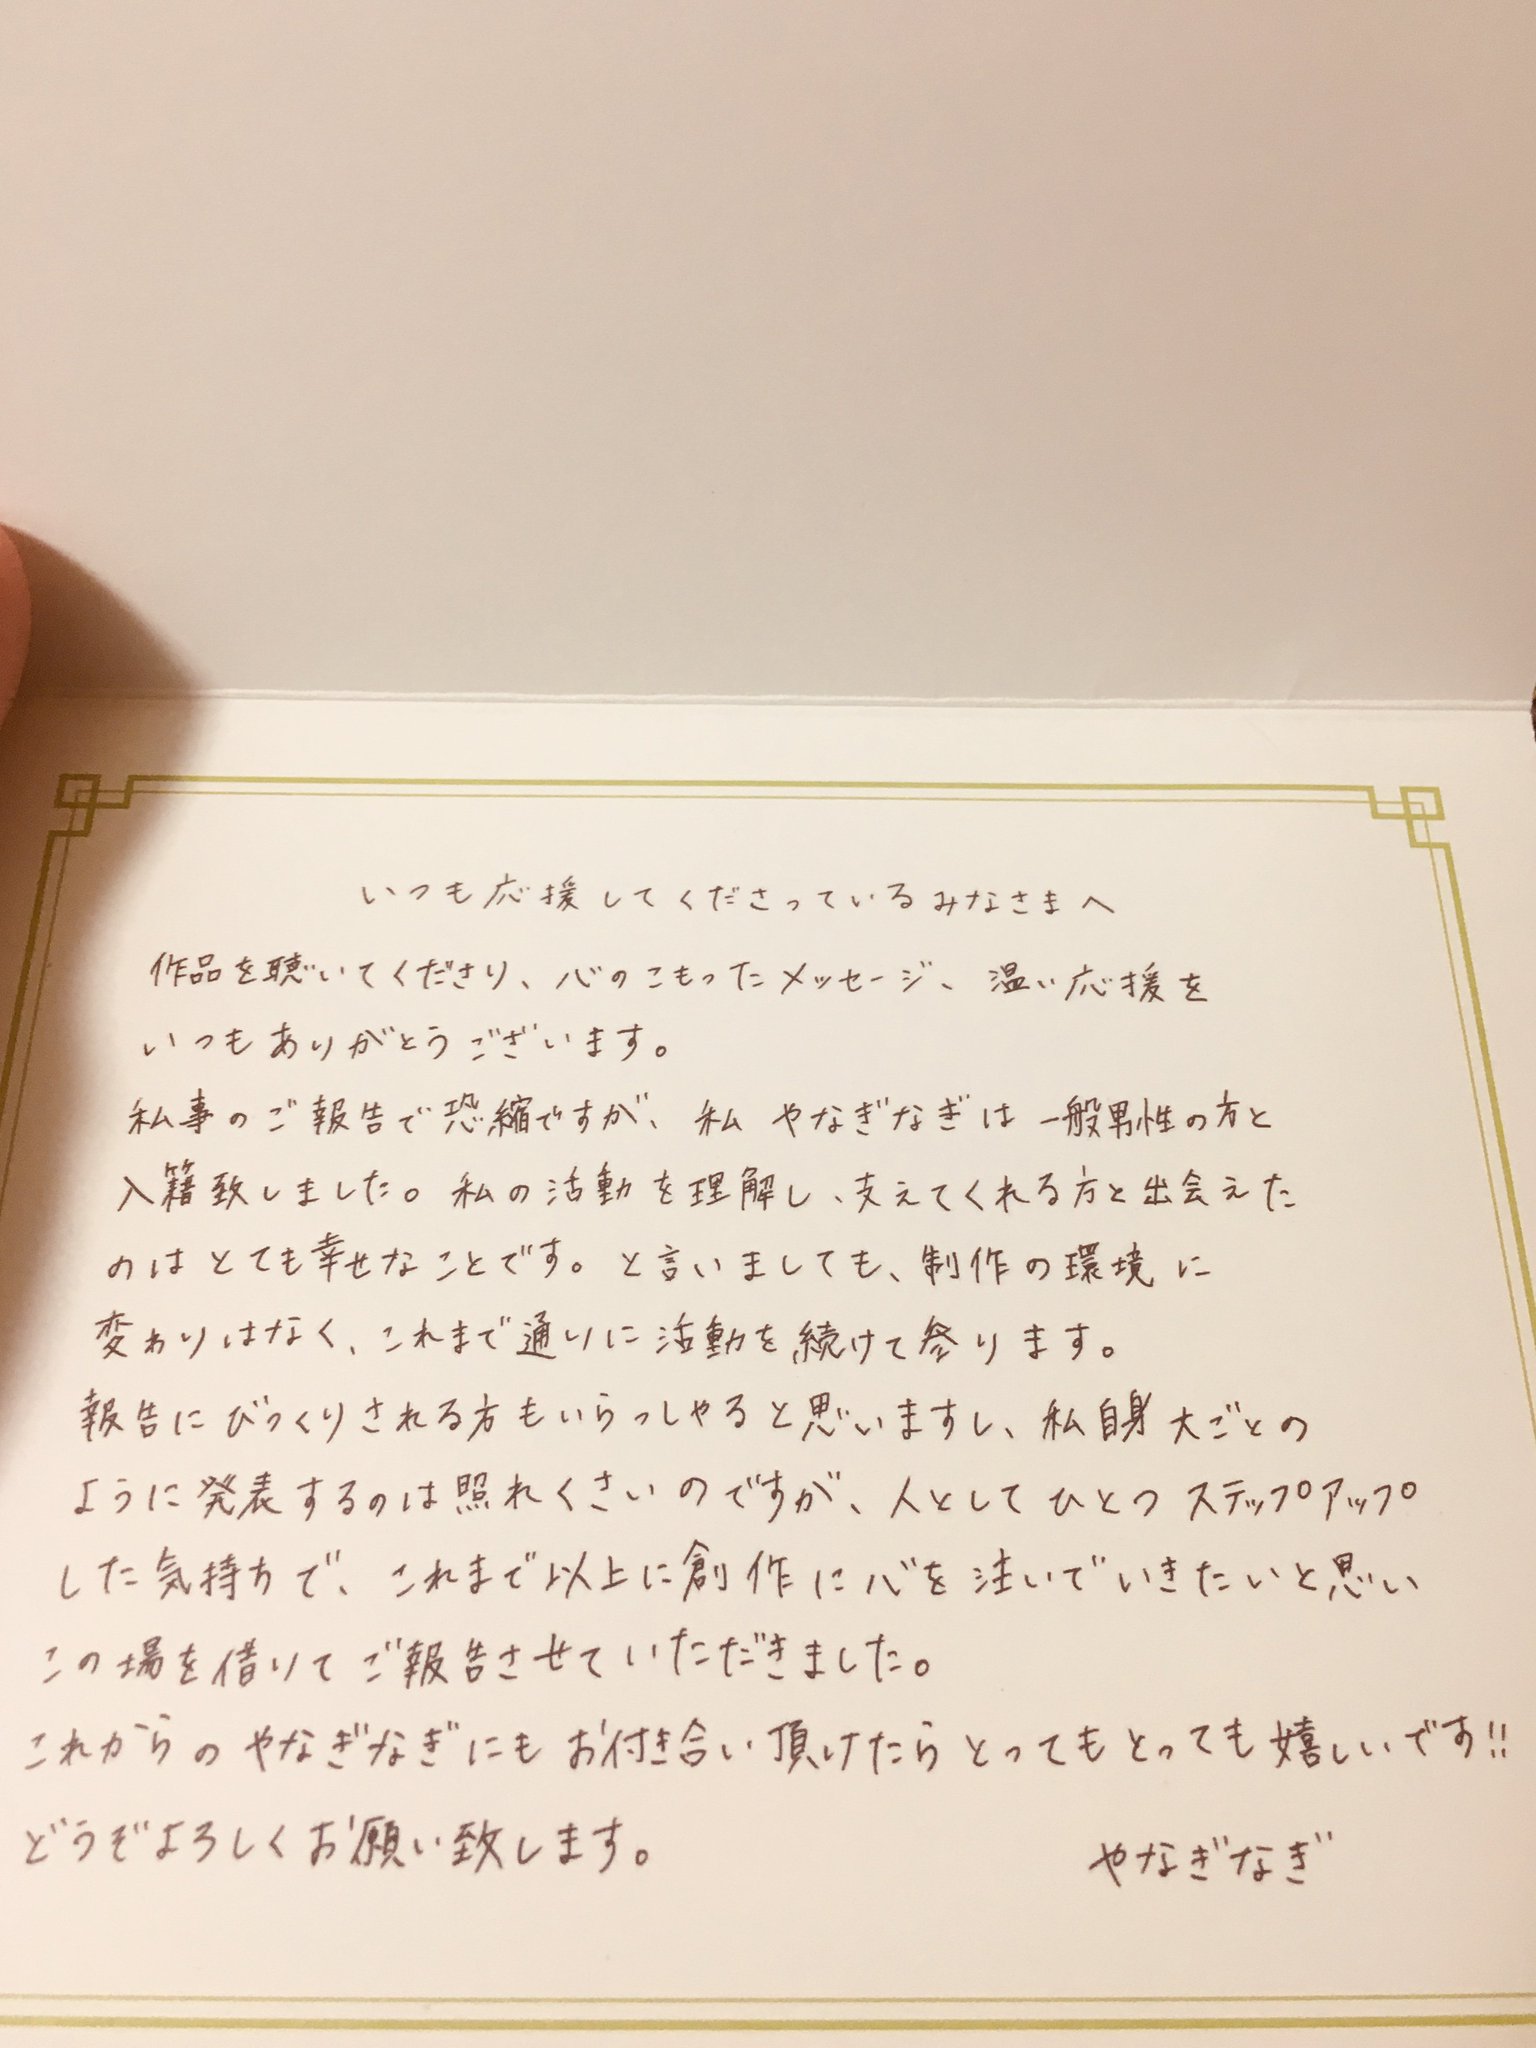 いつも応援してくださっているみなさまへ
作品を聴いてくださり、心のこもったメッセージ、温い応援を
いつもありがとうございます。
私事のご報告で恐縮ですが、私 やなぎなぎは一般男性の方と
入籍致しました。私の活動を理解し、支えてくれる方と出会えた
のはとても幸せなことです。と言いましても、制作の環境に
変わりはなく、これまで通りに活動を続けて参ります。
報告にびっくりされる方もいらっしゃると思いますし、私自身大ごとの
ように発表するのは照れくさいのですが、人としてひとつステップアップ
した気持ちで、これまで以上に創作に心を注いでいきたいと思い
この場を借りてご報告させていただきました。
これからのやなぎなぎにもお付き合い頂けたらとってもとっても嬉しいです!!
どうぞよろしくお願い致します。
やなぎなぎ